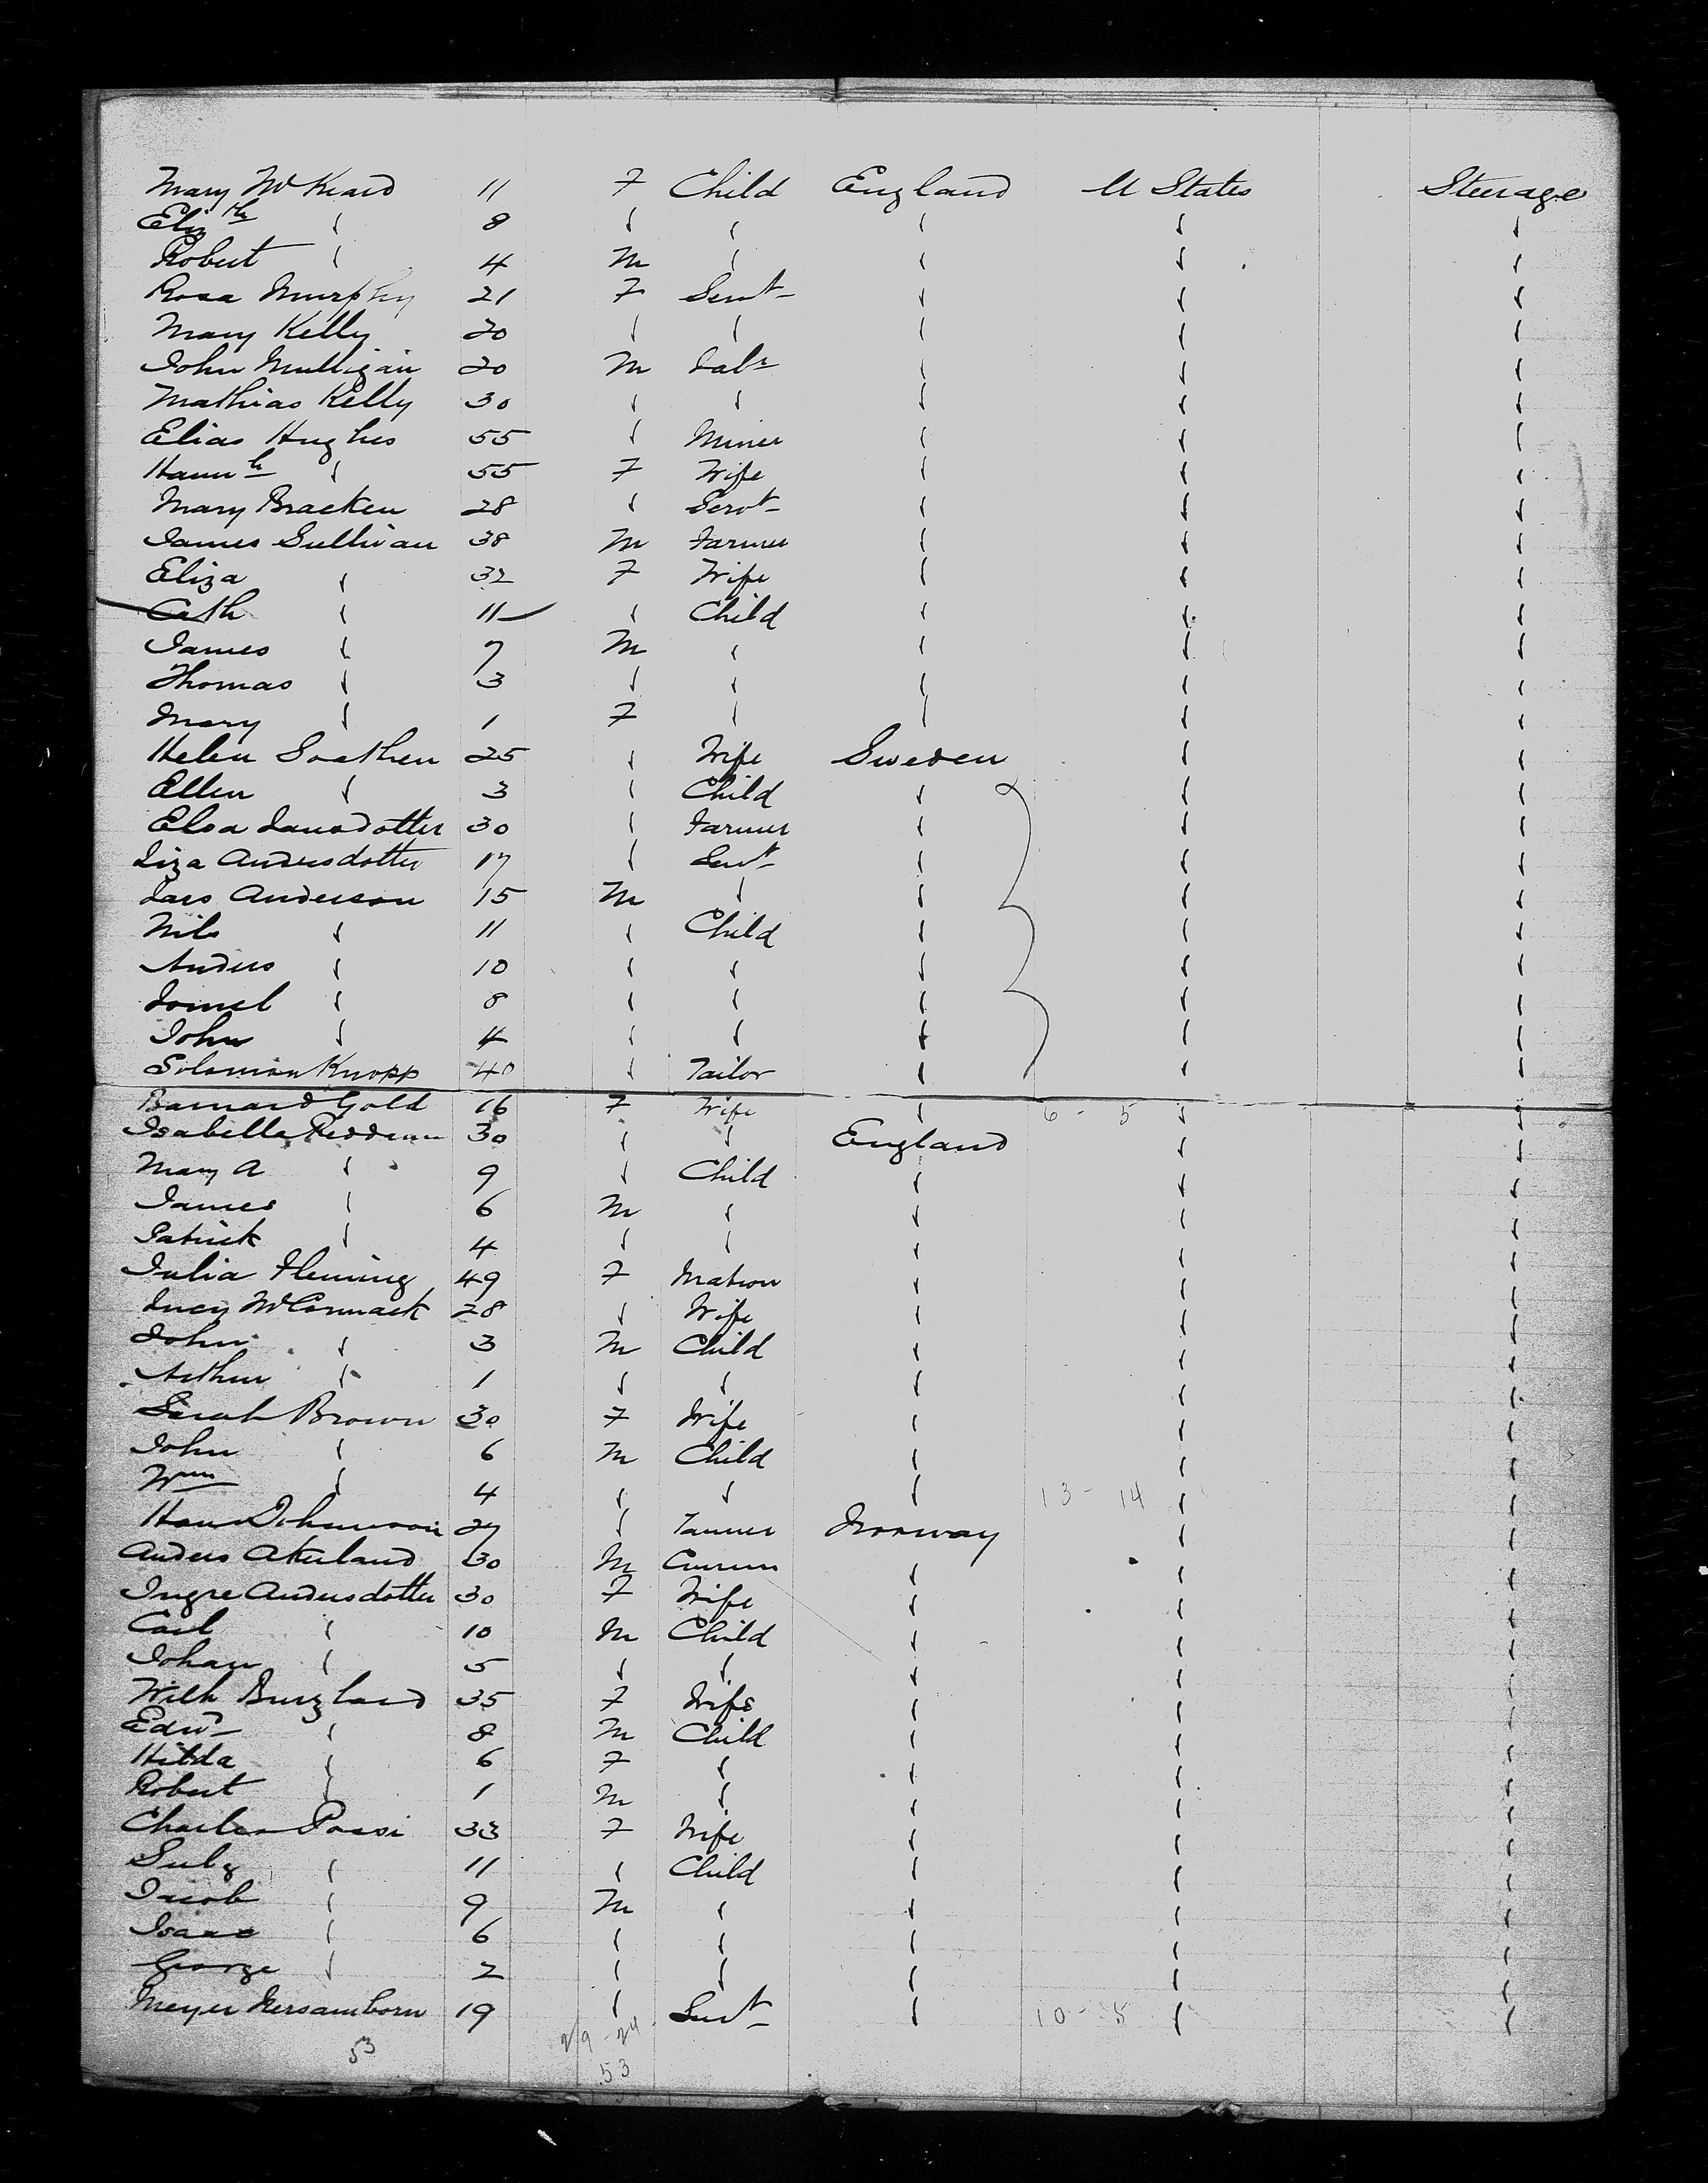 Mary McKeard 11 F Child England U States Steerage
Elizth " 8 " " " " "
Robert " 4 M " " " "
Rosa Murphy 21 F Servt " " "
Mary Kelly 20 " " " " "
John Mulligan 20 M Labr " " "
Mathias Kelly 30 " " " " "
Elias Hughes 55 " Miner " " "
Hannh " 55 F Wife " " "
Mary Bracken 28 " Servt " " "
James Sullivan 38 M Farmer " " "
Eliza " 32 F Wife " " "
Cath " 11 " Child " " "
James " 7 M " " " "
Thomas " 3 " " " " "
Mary " 1 F " " " "
Helen 25 " Wife Sweden " "
Ellen " 3 " Child " " "
Elsa Larsdotter 30 " Farmer " " "
Liza Andersdotter 17 " Servt " " "
Lars Anderson 15 M " " " "
Nils " 11 " Child " " "
Anders " 10 " " " " "
" 8 " " " " "
John " 4 " " " " "
Solomon Knopp 40 " Tailor " " "
Barnard Gold 16 F Wife " 6 - 5 " "
Isabella 30 " " England " "
Mary A " 9 " Child " " "
James " 6 M " " " "
Patrick " 4 " " " " "
Julia Fleming 49 F Matron " " "
Lucy McCormack 28 " Wife " " "
John " 3 M Child " " "
Arthur " 1 " " " " "
Sarah Brown 30 F Wife " " "
John " 6 M Child " " "
Wm " 4 " " " 13 - 14 " "
Hans Johnson 27 " Tanner Norway " "
Anders Akerland 30 M " " "
Ingre Andersdotter 30 F Wife " " "
Carl " 10 M Child " " "
Johan " 5 " " " " "
Wilh Burgland 35 F Wife " " "
Edwd " 8 M Child " " "
Hilda " 6 F " " " "
Robert " 1 M " " " "
Possi 33 F Wife " " "
" 11 " Child " " "
Jacob " 9 M " " " "
Isaac " 6 " " " " "
George " 2 " " " " "
Meyer 19 " Servt " 10 - 5 " "
53 29 - 24
53